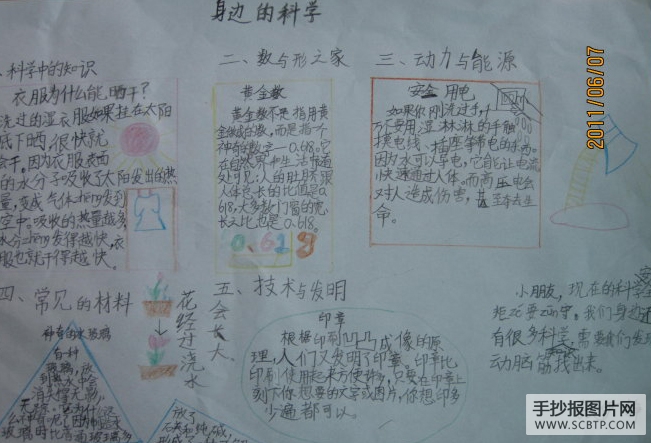 身边的科学
科学中的知识
衣服为什么能晒干?
洗过的湿衣服如果挂在太阳
底下晒,很快就
会干。因为衣服表面
的水分子吸收了太阳发出的热
量,变成气体zheng发到
空中。吸收的热量越多
水分zheng发得越快,衣
服也就干得越快。
二、数与形之家
黄金数
黄金数不是指用黄
金做的数,而是指一个
神奇的数字—0.618。它
在自然界和生活中随
处可见:人的肚脐跟
人体总长的比值是0.
618,大多数门窗的宽
长之比也是0.618。
0.618
三、动力与能源
安全用电
如果你刚洗过手,千
万不要用湿淋淋的手触
摸电线、插座等带电的东西。
因为水可以导电,它能让电流
快速通过人体。而高压电会
对人造成伤害,甚至夺去生
命。
四、常见的材料
神奇的水玻璃
有一种
玻璃,放
到水中会
消失得无影
花经过浇水
会长大。
五、技术与发明
印章
根据印刷凹凸成像的原
理,人们又发明了印章。印章比
印刷使用起来方便得多,只要在印章上
刻下你想要的文字或图片,你想印多
少遍都可以。
小朋友,现在的科学
我们身边还
有很多科学,需要我们发
动脑筋找出来。
2011/06/07
手抄报图片网
WWW.SCBTP.COM